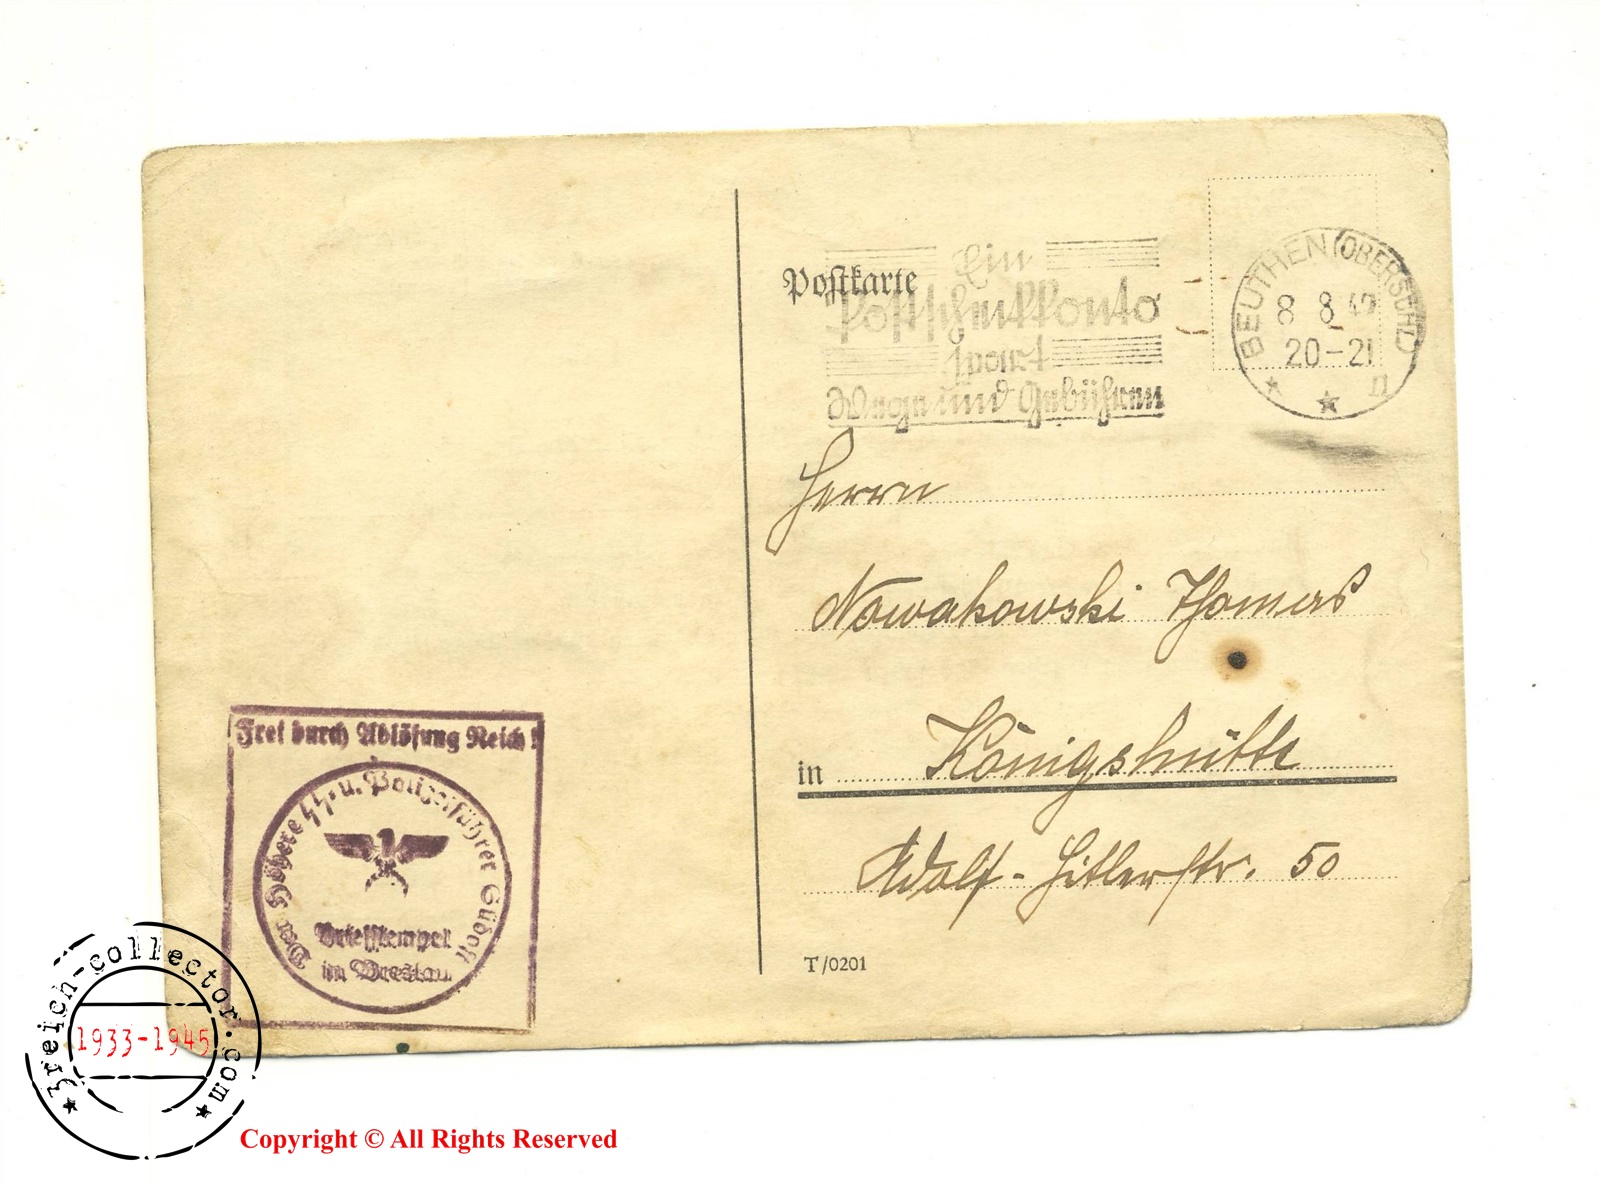 Postkarte
Ein
Postscheckkonto
spart
Wege und Gebühren
BEUTHEN (OBERSCHL)
8 8 42
20-21
n
Herrn
Nowakowski Thomas
in Königshütte
Adolf-Hitlerstr. 50
T/0201
Frei durch Ablösung Reich
Der Höhere SS- u. Polizeiführer Südost
Briefstempel
im Breslau
3reich-collector.com
1933-1945
Copyright © All Rights Reserved